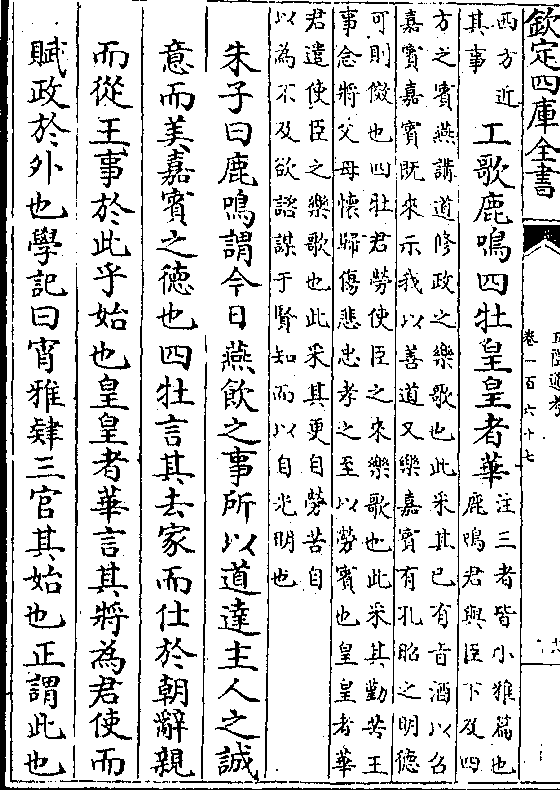 欽定四庫全書
卷一百六十七
西方近
其事
工歌鹿鳴四牡皇皇者華
注三者皆小雅篇也
鹿鳴君與臣下及四
方之賓燕講道修政之樂歌也此采其已有旨酒以召
嘉賓嘉賓既來示我以善道又樂嘉賓有孔昭之明德
可則傚也四牡君勞使臣之來樂歌也此采其勤苦王
事念將父母懷歸傷悲忠孝之至以勞賓也皇皇者華
君遣使臣之樂歌也此采其更自勞苦自
以為不及欲諮謀于賢知而以自光明也
朱子曰鹿鳴謂今日燕飲之事所以道達主人之誠
意而美嘉賓之德也四牡言其去家而仕於朝辭親
而從王事於此乎始也皇皇者華言其將為君使而
賦政於外也學記曰宵雅肄三官其始也正謂此也